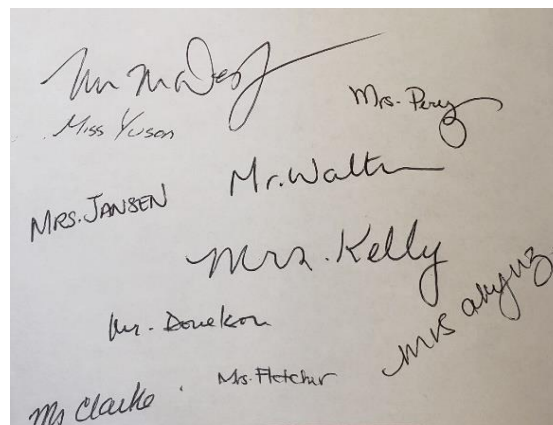 Mrs. Perez
Miss Yuson
Mr. Walt
MRS. JANSEN
Mrs. Kelly
Mr. Donelson
Mrs
Mrs. Fletcher
Ms Clarke